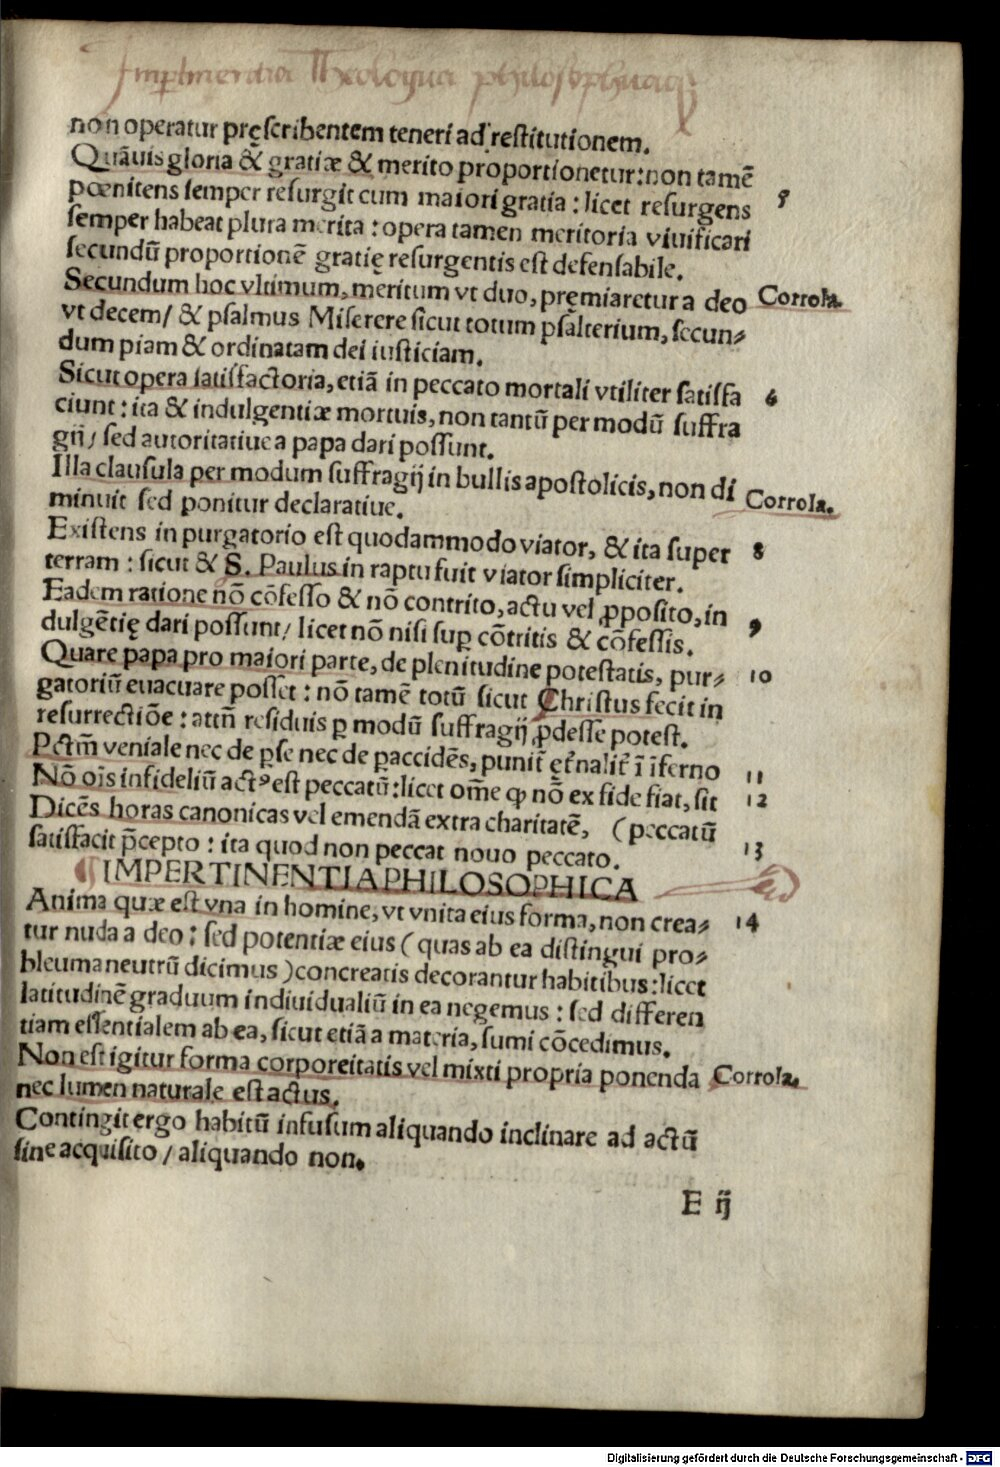 Impertinentia Theologica philosophicaq̃
non operatur pręscribentem teneri ad restitutionem.
Quãuis gloria & gratiæ & merito proportionetur: non tamẽ
pœnitens semper resurgit cum maiori gratia : licet resurgens 5
semper habeat plura merita : opera tamen meritoria viuificari
secundũ proportionẽ gratię resurgentis est defensabile.
Secundum hoc vltimum, meritum vt duo, pręmiaretur a deo Corrola.
vt decem/ & psalmus Miserere sicut totum psalterium, secun⸗
dum piam & ordinatam dei iusticiam.
Sicut opera satisfactoria, etiã in peccato mortali vtiliter satisfa 6
ciunt : ita & indulgentiæ mortuis, non tantũ per modũ suffra
gij/ sed autoritatiue a papa dari possunt.
Illa clausula per modum suffragij in bullis apostolicis, non di Corrola.
minuit sed ponitur declaratiue.
Existens in purgatorio est quodammodo viator, & ita super 8
terram : sicut & S. Paulus in raptu fuit viator simpliciter.
Eadem ratione nõ cõfesso & nõ contrito, actu vel ꝓposito, in 9
dulgẽtię dari possunt/ licet nõ nisi suꝑ cõtritis & cõfessis.
Quare papa pro maiori parte, de plenitudine potestatis, pur⸗ 10
gatoriũ euacuare posset : nõ tamẽ totũ sicut Christus fecit in
resurrectiõe : attñ residuis ꝑ modũ suffragij ꝓdesse potest.
Pctm̃ veniale nec de ꝑse nec de ꝑaccidẽs, punit̃ ęt̃nalit̃ ĩ ĩferno 11
Nõ oĩs infideliũ actꝰ est peccatũ: licet om̃e ꝙ nõ ex fide fiat, sit 12
Dicẽs horas canonicas vel emendã extra charitatẽ, (peccatũ
satisfacit p̃cepto : ita quod non peccat nouo peccato. 13
¶IMPERTINENTIA PHILOSOPHICA
Anima quæ est vna in homine, vt vnita eius forma, non crea⸗ 14
tur nuda a deo : sed potentiæ eius ( quas ab ea distingui pro⸗
bleuma neutrũ dicimus ) concreatis decorantur habitibus: licet
latitudinẽ graduum indiuidualiũ in ea negemus : sed differen
tiam essentialem ab ea, sicut etiã a materia, sumi cõcedimus.
Non est igitur forma corporeitatis vel mixti propria ponenda Corrola.
nec lumen naturale est actus.
Contingit ergo habitũ infusum aliquando inclinare ad actũ
sine acquisito / aliquando non.
E ij
Digitalisierung gefördert durch die Deutsche Forschungsgemeinschaft - DFG